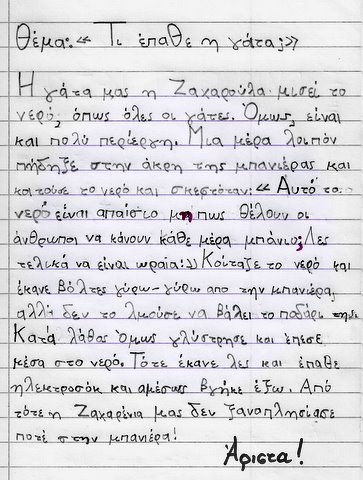 Θέμα: « Τι έπαθε η γάτα;»
Η γάτα μας η Ζαχαρούλα μισεί το
νερό, όπως όλες οι γάτες. Όμως, είναι
και πολύ περίεργη. Μια μέρα λοιπόν
πήδηξε στην άκρη της μπανιέρας και
κοιτούσε το νερό και σκεφτόταν: « Αυτό το
νερό είναι απαίσιο μα πως θέλουν οι
άνθρωποι να κάνουν κάθε μέρα μπάνιο; Λες
τελικά να είναι ωραία;» Κοίταξε το νερό και
έκανε βόλτες γύρω-γύρω απο την μπανιέρα,
αλλά δεν το λμούσε να βάλει το ποδάρι της.
Κατά λάθος όμως γλύστρησε και έπεσε
μέσα στο νερό. Τότε έκανε λες και έπαθε
ηλεκτροσόκ και αμέσως βγήκε έξω. Από
τότε η Ζαχαρένια μας δεν ξαναπλησίασε
ποτέ στην μπανιέρα!
Άριστα!